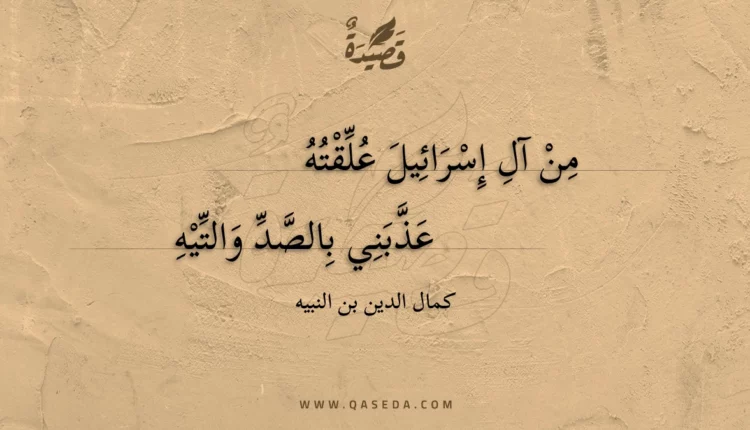 قَصِيْدَةٌ
مِنْ آلِ إِسْرَائِيلَ عُلِّقْتُهُ
عَذَّبَنِي بِالصَّدِّ وَالتِّيْهِ
كمال الدين بن النبيه
WWW.QASEDA.COM